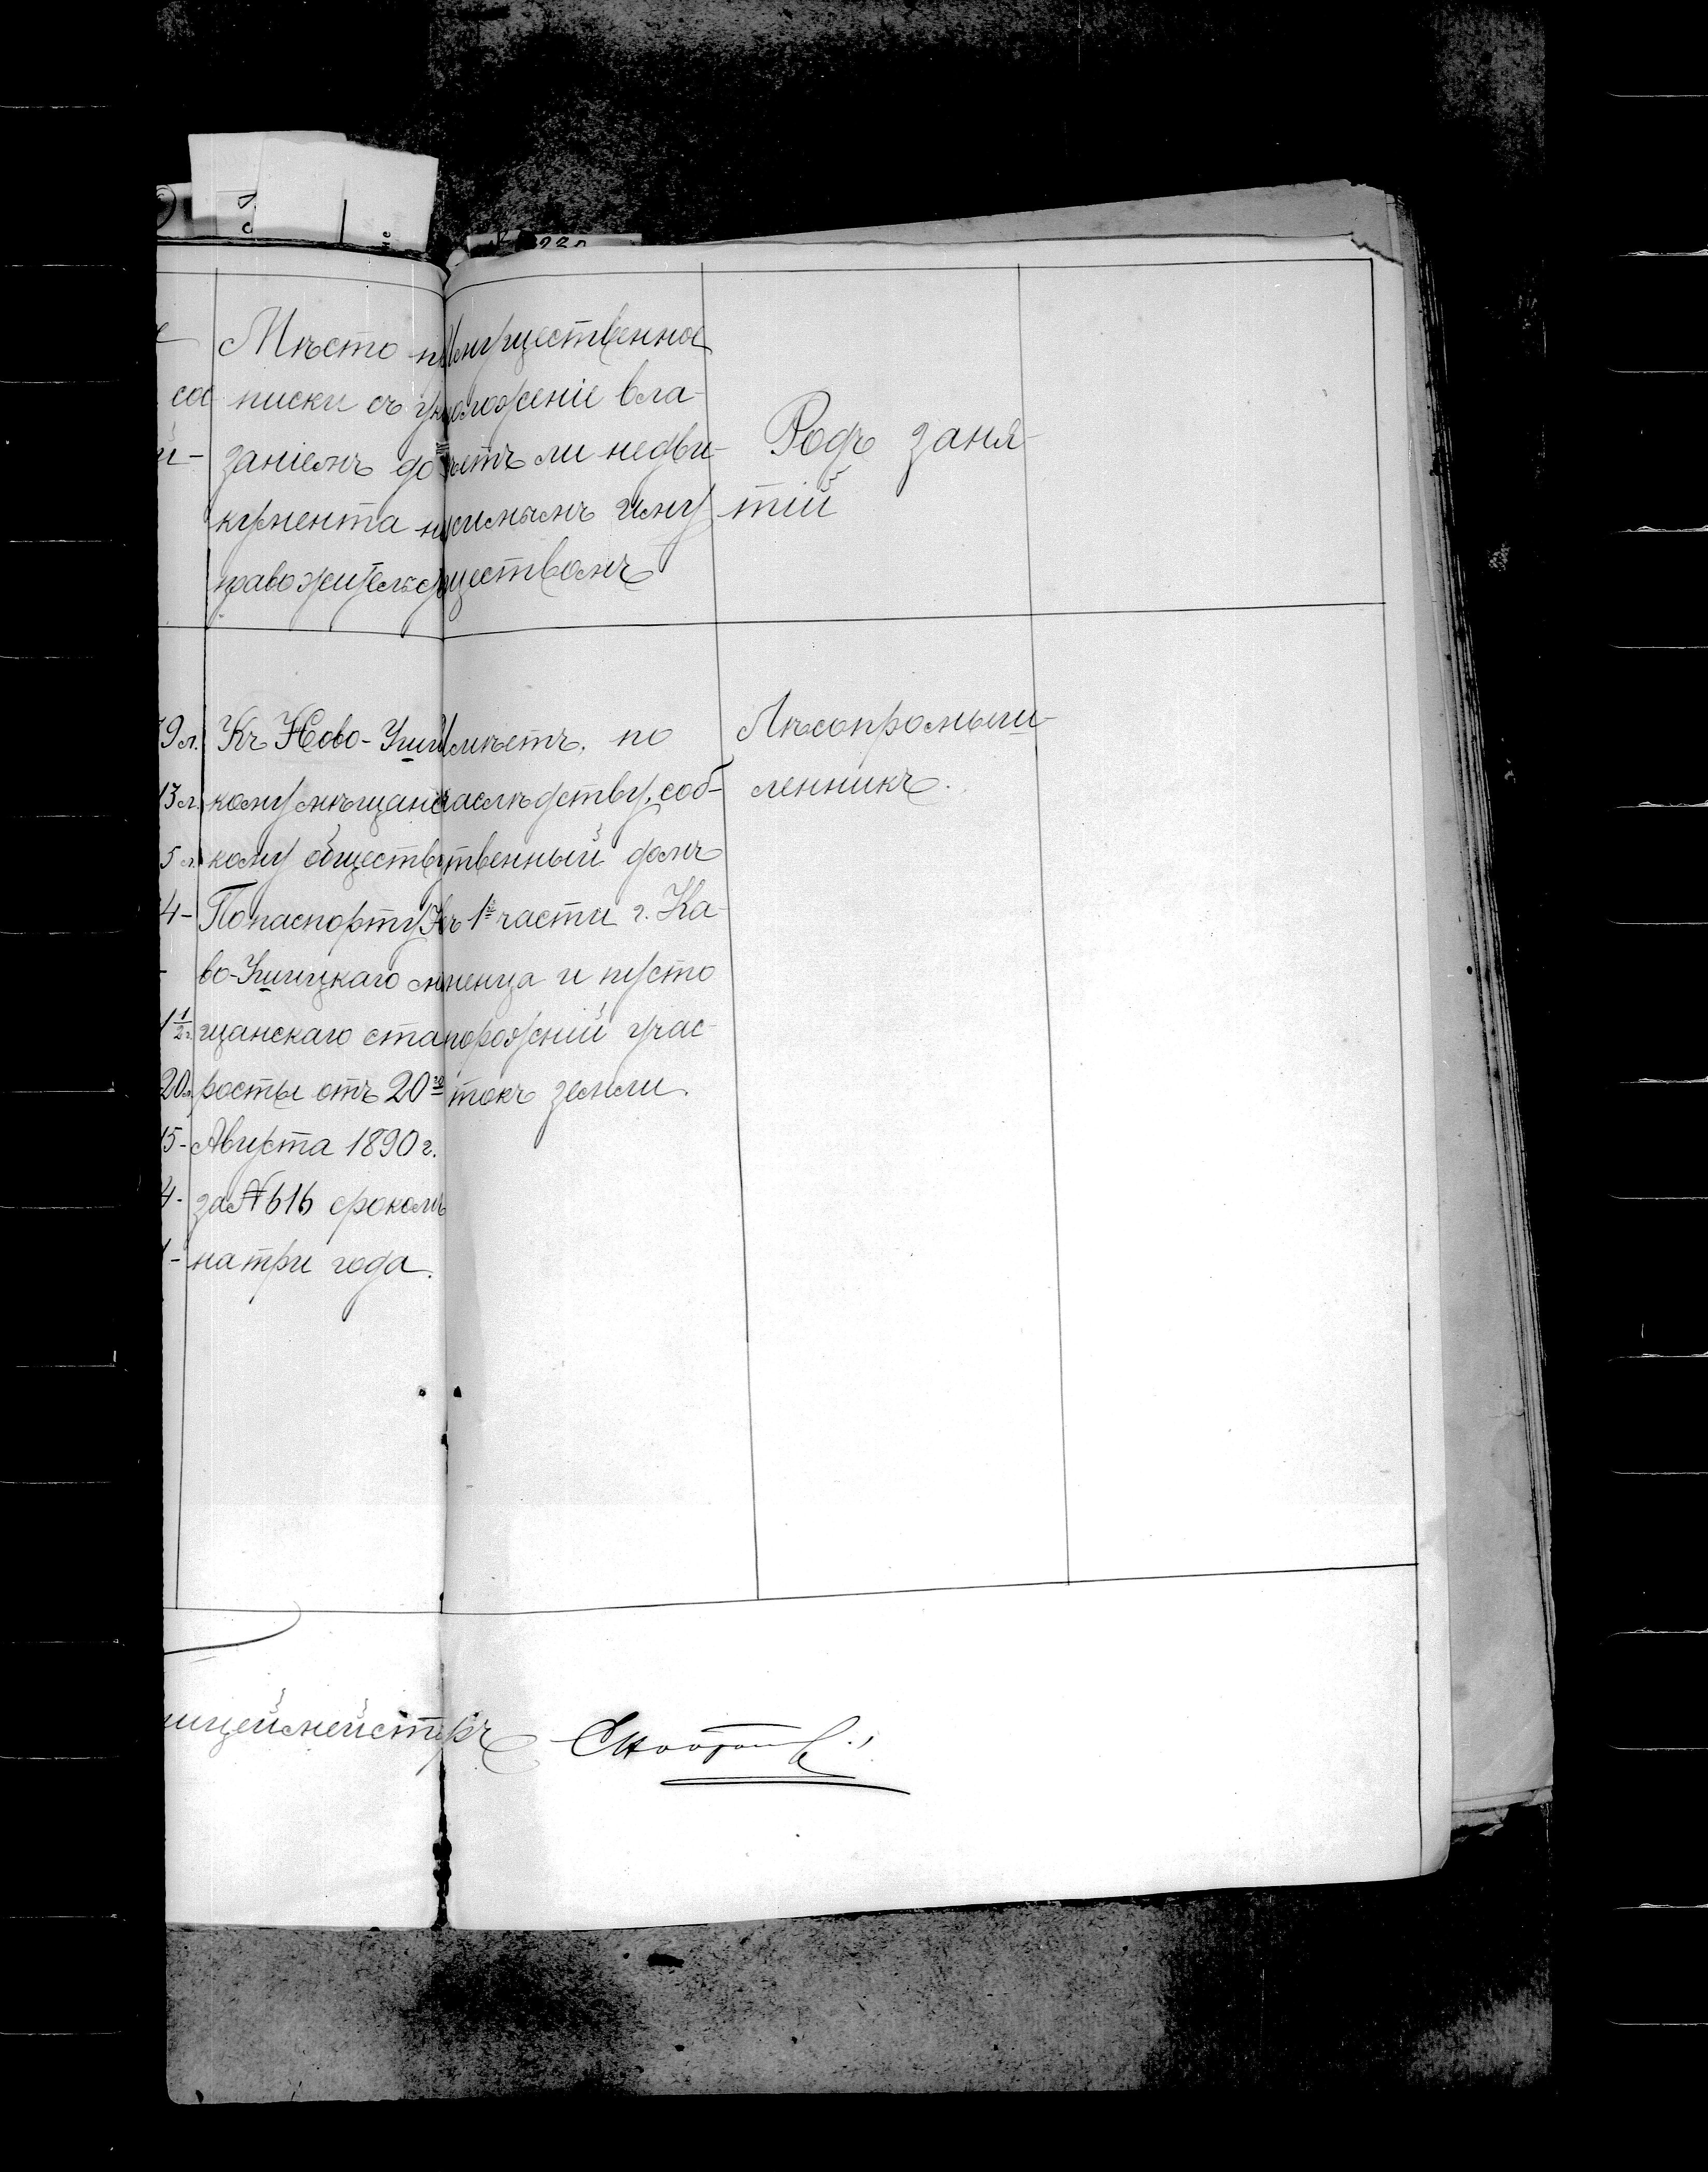 Мѣсто п
писки съ ука
заніемъ до
кумента н
право жительс
Имущественное
положеніе вла-
ѣетъ ли недви-
жимымъ иму
ществомъ
Родъ заня-
тій
9 л.
13 л.
5 л.
4-
1 1/2 г.
20 л.
15-
4-
1-
Къ Ново-Ушиц
кому мѣщанс
кому обществу
По паспорту Но
во-Ушицкаго мѣ
щанскаго ста
росты отъ 20го
Августа 1890 г.
за № 616 срокомъ
на три года.
Имѣетъ, по
наслѣдству, соб-
ственный домъ
въ 1й части г. Ка-
менца и пусто
порожній учас-
токъ земли.
Лѣсопромыш-
ленникъ.
ицеймейстеръ